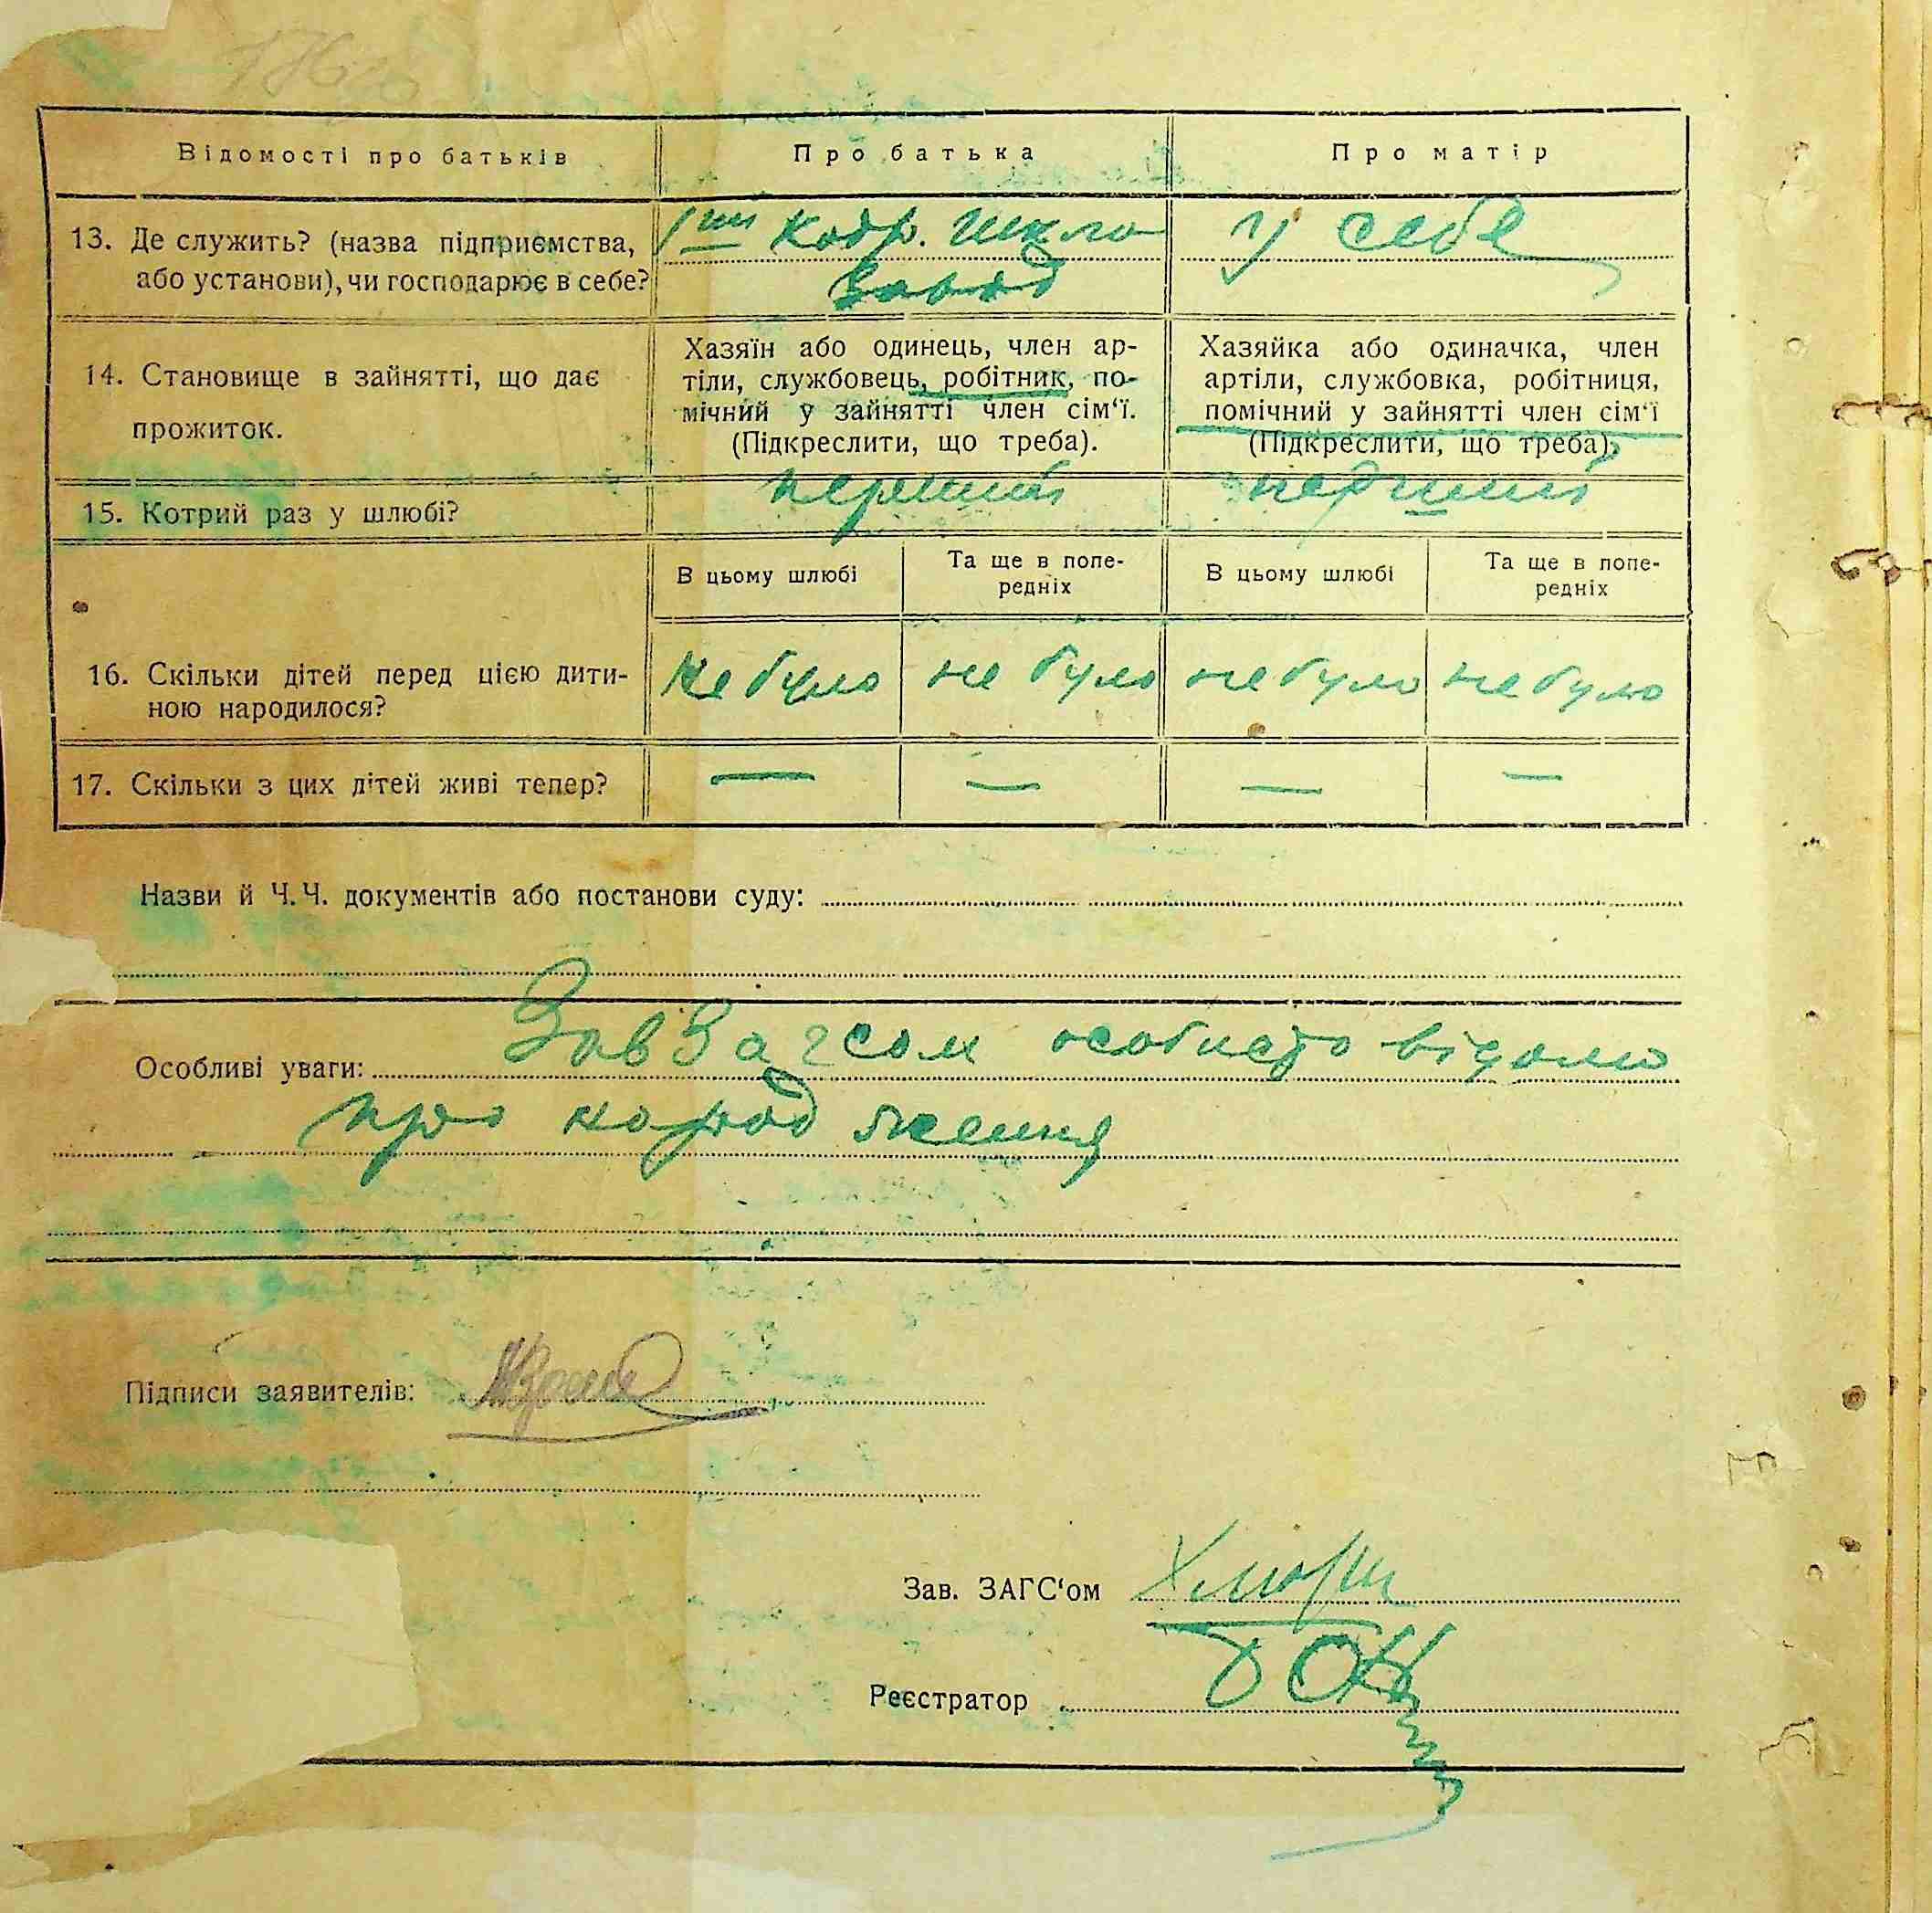 Відомості про батьків
Про батька
Про матір
13. Де служить? (назва підприємства,
або установи), чи господарює в себе?
1ший Кодр. Шкло
Завод
у себе
14. Становище в зайнятті, що дає
прожиток.
Хазяїн або одинець, член ар-
тіли, службовець, робітник, по-
мічний у зайнятті член сім‘ї.
(Підкреслити, що треба).
Хазяйка або одиначка, член
артіли, службовка, робітниця,
помічний у зайнятті член сім‘ї
(Підкреслити, що треба).
15. Котрий раз у шлюбі?
перший
перший
В цьому шлюбі
Та ще в попе-
редніх
В цьому шлюбі
Та ще в попе-
редніх
16. Скільки дітей перед цією дити-
ною народилося?
не було
не було
не було
не було
17. Скільки з цих дітей живі тепер?
—
—
—
—
Назви й Ч. Ч. документів або постанови суду:
Особливі уваги: Зав Загсом особисто відомо
про народження
Підписи заявителів:
Зав. ЗАГС‘ом
Реєстратор